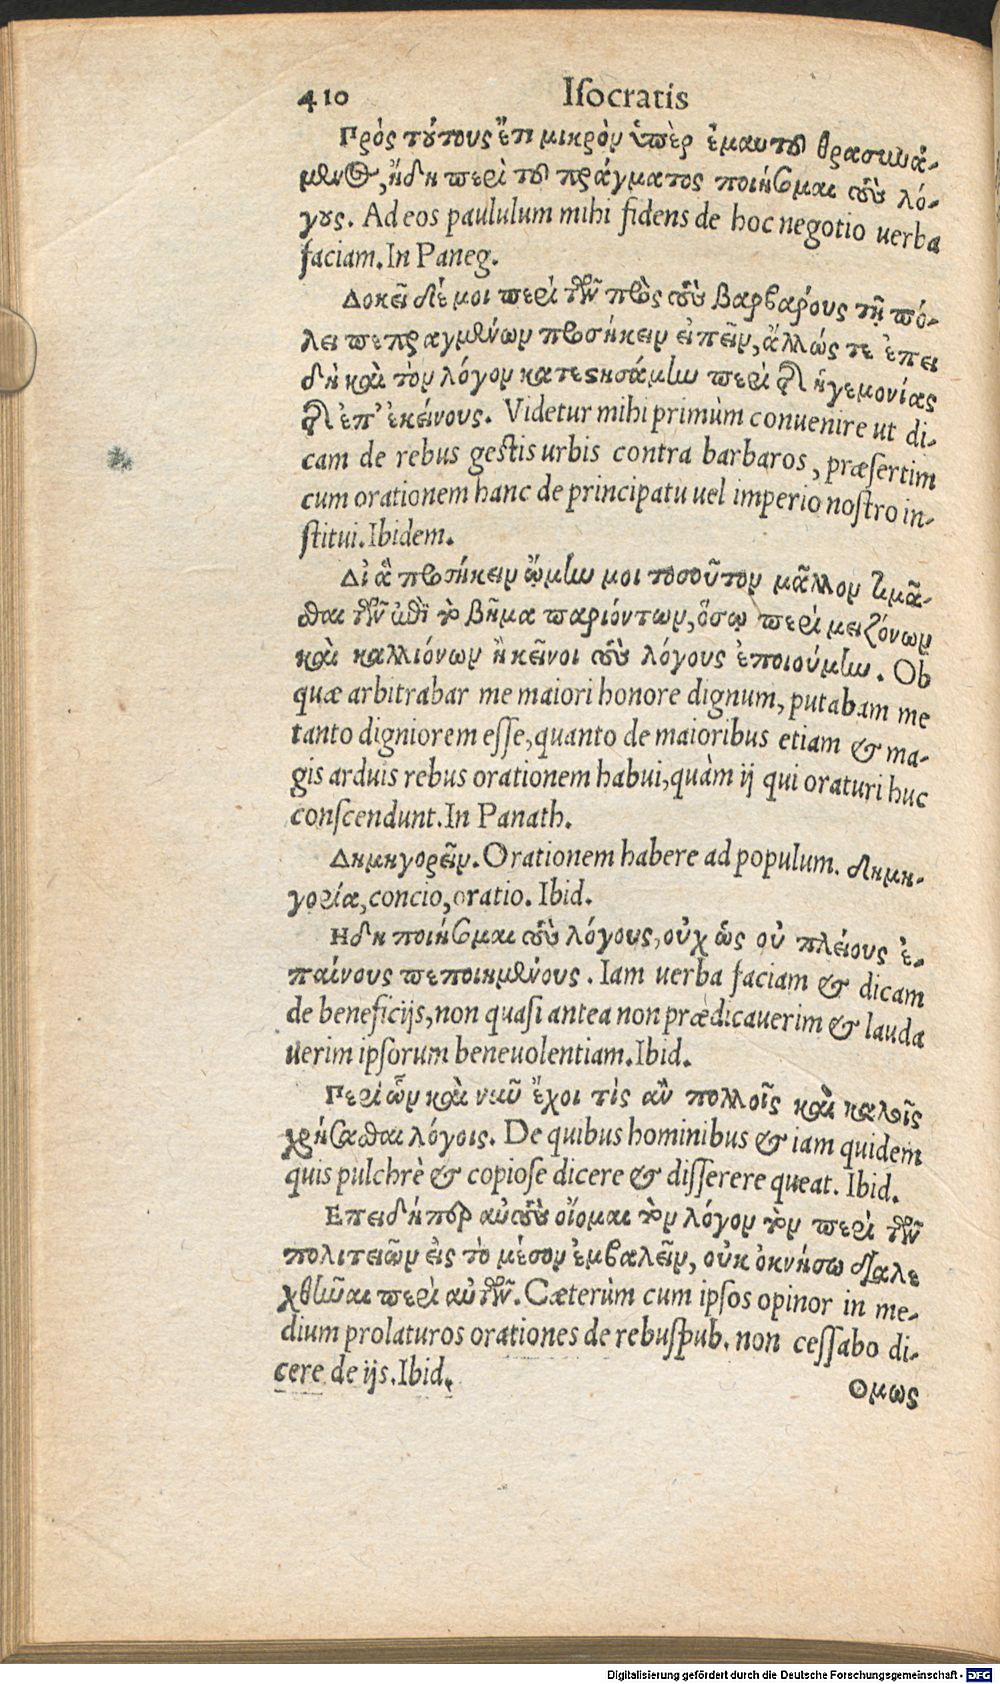 410 Isocratis
Πρὸς τούτους ἔτι μικρὸν ὑπὲρ ἐμαυτοῦ θρασυνά-
μενος, ἤδη περὶ τοῦ πράγματος ποιήσομαι τοὺς λό-
γους. Ad eos paululum mihi fidens de hoc negotio uerba
faciam. In Paneg.
Δοκεῖ δέ μοι περὶ τῶν πρὸς τοὺς βαρβάρους τῇ πό-
λει πεπραγμένων προσήκειν εἰπεῖν, ἄλλως τε ἐπει
δὴ καὶ τὸν λόγον κατεστησάμην περὶ τῆς ἡγεμονίας
τῆς ἐπ' ἐκείνους. Videtur mihi primùm conuenire ut di-
cam de rebus gestis urbis contra barbaros, præsertim
cum orationem hanc de principatu uel imperio nostro in-
stitui. Ibidem.
Δι' ἃ προσήκειν ᾤμην μοι τοσοῦτον μᾶλλον τιμᾶ-
σθαι τῶν ἐπὶ τὸ βῆμα παριόντων, ὅσῳ περὶ μειζόνων
καὶ καλλιόνων ἢ κεῖνοι τοὺς λόγους ἐποιούμην. Ob
quæ arbitrabar me maiori honore dignum, putabam me
tanto digniorem esse, quanto de maioribus etiam & ma-
gis arduis rebus orationem habui, quàm ij qui oraturi huc
conscendunt. In Panath.
Δημηγορεῖν. Orationem habere ad populum. δημη-
γορία, concio, oratio. Ibid.
Ηδη ποιήσομαι τοὺς λόγους, οὐχ ὡς οὐ πλείους ἐ-
παίνους πεποιημένους. Iam uerba faciam & dicam
de beneficijs, non quasi antea non prædicauerim & lauda
uerim ipsorum beneuolentiam. Ibid.
Περὶ ὧν καὶ νῦν ἔχοι τὶς ἂν πολλοῖς καὶ καλοῖς
χρήσασθαι λόγοις. De quibus hominibus & iam quidem
quis pulchrè & copiose dicere & disserere queat. Ibid.
Επειδήπερ αὐτοὺς οἴομαι τὸν λόγον τὸν περὶ τῶν
πολιτειῶν εἰς τὸ μέσον ἐμβαλεῖν, οὐκ ὀκνήσω διαλε
χθῆναι περὶ αὐτῶν. Cæterùm cum ipsos opinor in me-
dium prolaturos orationes de rebuspub. non cessabo di-
cere de ijs. Ibid.
Ομως
Digitalisierung gefördert durch die Deutsche Forschungsgemeinschaft - DFG